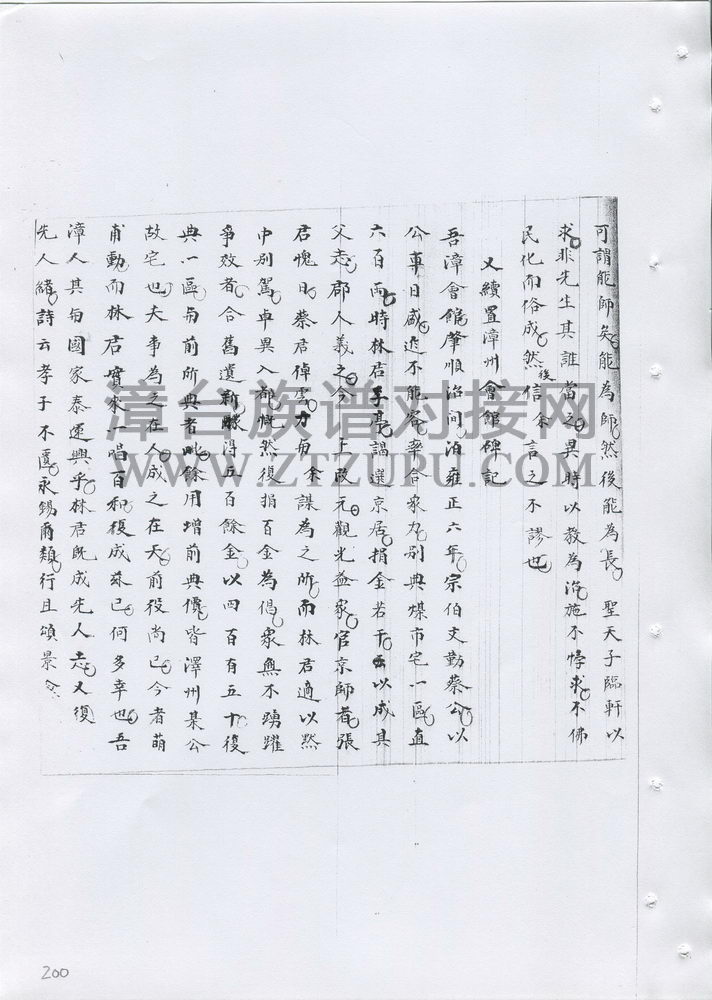 可謂能師矣能為師然後能為長 聖天子臨軒以
求非先生其誰當之異時以教為治施不悖求不佛
民化而俗成然後信余言之不謬也
又續置漳州會館碑記
吾漳會館肇順治間洎雍正六年宗伯文勤蔡公以
公車日盛進不能容率合眾力別典煤市宅一區直
六百兩時林君子亭謁選京居捐金若干以成其
父志郡人義之今上改元觀光益眾官京師者張
君愧日蔡君倬雲力與余謀為之所而林君適以黙
中別駕卓異入都慨然復捐百金為倡眾無不踴躍
爭效者合舊遺新得五百餘金以四百有五十復
典一區與前所典者毗餘用增前典價皆澤州某公
故宅也夫事為之在人成之在天前役尚已今者萌
甫動而林君實來一唱百和復成茲已何多幸也吾
漳人其與國家泰運興乎林君既成先人志又復
先人緒詩云孝子不匱永錫爾類行且頌景
漳台族谱对接网
WWW.ZTZUPU.COM
200